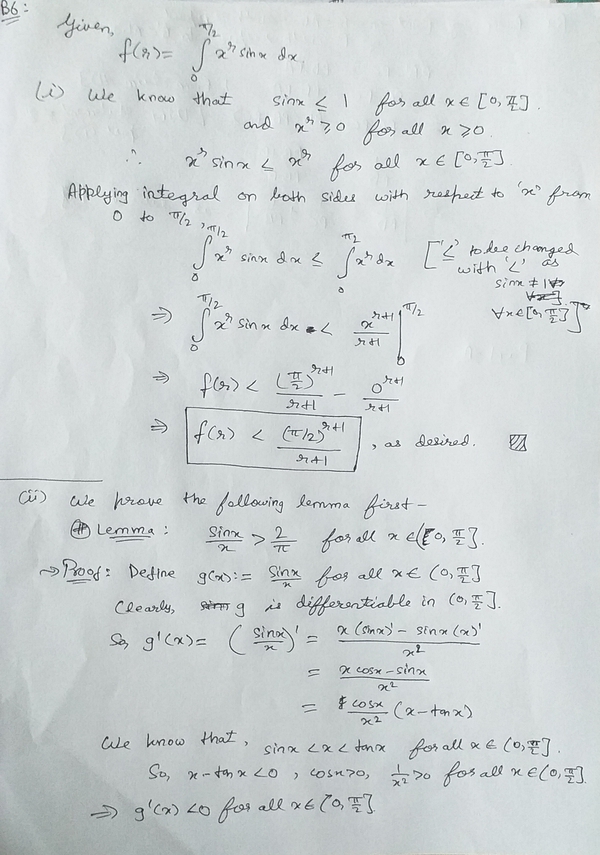 B6:
Given,
f(r) = ∫₀^{π/2} x^r sinx dx.
(i) We know that sinx ≤ 1 for all x ∈ [0, π/2].
and x^r ≥ 0 for all x ≥ 0.
∴ x^r sinx ≤ x^r for all x ∈ [0, π/2].
Applying integral on both sides with respect to 'x' from
0 to π/2,
∫₀^{π/2} x^r sinx dx ≤ ∫₀^{π/2} x^r dx ['≤' to be changed
with '<' as
sinx ≠ 1
∀x∈[0, π/2]]
⇒ ∫₀^{π/2} x^r sinx dx < x^{r+1}/(r+1) |₀^{π/2}
⇒ f(r) < (π/2)^{r+1}/(r+1) − 0^{r+1}/(r+1)
⇒ f(r) < (π/2)^{r+1}/(r+1), as desired.
(ii) We prove the following lemma first –
# Lemma: sinx/x > 2/π for all x ∈ (0, π/2].
→ Proof: Define g(x) := sinx/x for all x ∈ (0, π/2]
Clearly, g is differentiable in (0, π/2].
So, g'(x) = (sinx/x)' = (x(sinx)' − sinx(x)')/x²
= (x cosx − sinx)/x²
= cosx/x² (x − tanx)
We know that, sinx < x < tanx for all x ∈ (0, π/2].
So, x − tanx < 0, cosx > 0, 1/x² > 0 for all x ∈ (0, π/2].
⇒ g'(x) < 0 for all x ∈ (0, π/2].